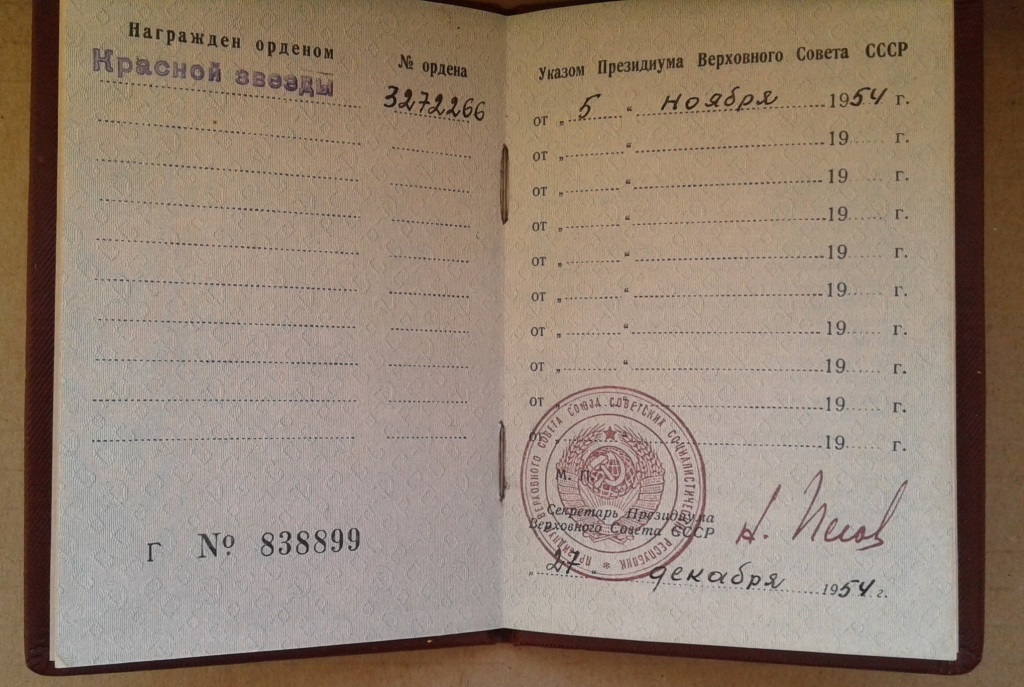 Награжден орденом
№ ордена
Красной звезды
3272266
Г № 838899
Указом Президиума Верховного Совета СССР
от „ 5 “ ноября 1954 г.
от „ “ 19 г.
от „ “ 19 г.
от „ “ 19 г.
от „ “ 19 г.
от „ “ 19 г.
от „ “ 19 г.
от „ “ 19 г.
от „ “ 19 г.
от „ “ 19 г.
ПРЕЗИДИУМ ВЕРХОВНОГО СОВЕТА СОЮЗА СОВЕТСКИХ СОЦИАЛИСТИЧЕСКИХ РЕСПУБЛИК
М. П.
Секретарь Президиума
Верховного Совета СССР
Н. Пегов
„ 27 “ декабря 1954 г.